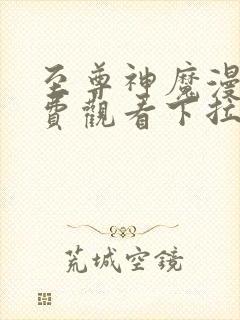 至尊神魔漫
費觀看下拉
荒城空鏡